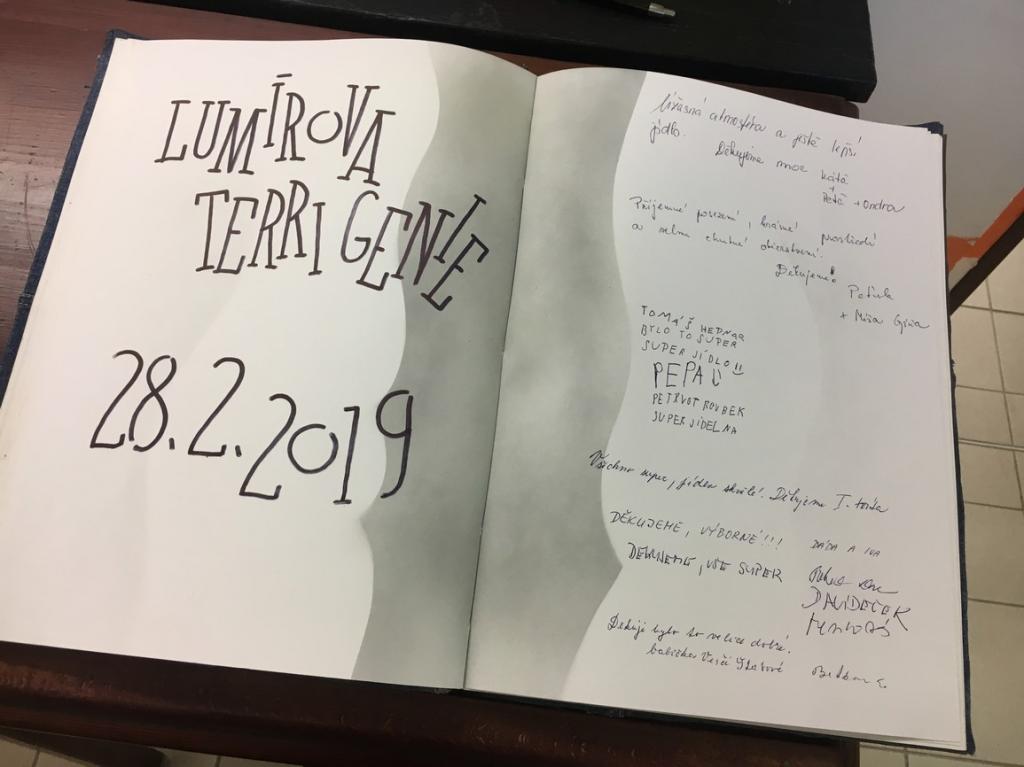 LUMÍROVA
TERRI GENIE
28. 2. 2019
Úžasná atmosféra a ještě lepší
jídlo.
Děkujeme moc Káťa
+
Péťa + Ondra
Příjemné posezení, krásné prostředí
a velmi chutné občerstvení.
Děkujeme! Peťula
+ Míša
TOMÁŠ
BYLO TO SUPER
SUPER JÍDLO!!
PEPA
SUPER JÍDELNA
Všechno super, jídlo skvělé. Děkujeme I.
DĚKUJEME, VÝBORNÉ!!! DÁDA A IVA
VŠE SUPER
DAVÍDEČEK
Dekuji bylo to velice dobré.
babička